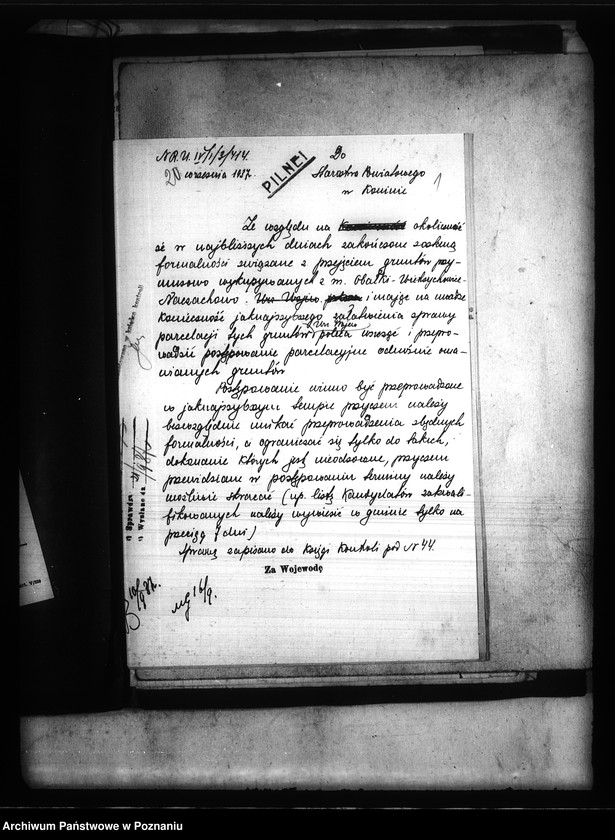 N.R.U. IV/1/3/414.
20 września 1937.
PILNE!
Do
Starostwa Powiatowego
w Koninie
1
Ze względu na okoliczność
że w najbliższych dniach zakończone zostaną
formalności związane z przejęciem gruntów przy-
musowo wykupywanych z m. Obałki-
. Urz. Wojew. i mając na uwadze
konieczność jaknajszybszego załatwienia sprawy
parcelacji tych gruntów Urz. Wojew. poleca wszcząć i przepro-
wadzić postępowanie parcelacyjne odnośnie oma-
wianych gruntów
Postępowanie winno być przeprowadzone
w jaknajszybszym tempie przyczem należy
bezwzględnie unikać przeprowadzenia zbędnych
formalności, a ograniczać się tylko do takich,
dokonanie których jest nieodzowne, przyczem
przewidziane w postępowaniu terminy należy
możliwie skracać (np. listę kandydatów zakwali-
fikowanych należy wywiesić w gminie tylko na
przeciąg 7 dni)
Sprawę zapisano do Księgi Kontroli pod Nr 44.
Za Wojewodę
1) Sprawdz.
2) Wysłano da
16/9.
Archiwum Państwowe w Poznaniu